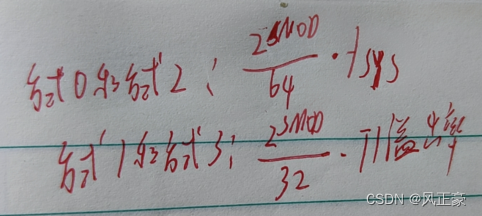 方式0和方式2: 2^SMOD/64 · fsys
方式1和方式3: 2^SMOD/32 · T1溢出率
CSDN @风正豪